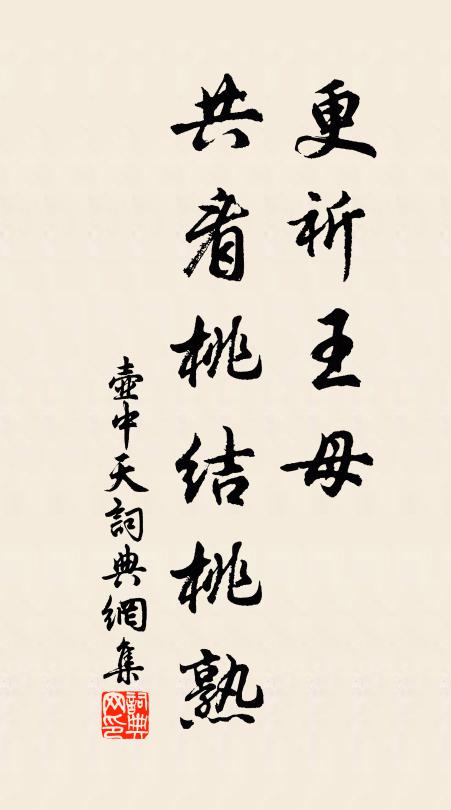 更祈王母
共看桃结桃熟
壶中天詞典網集
詞典
网印